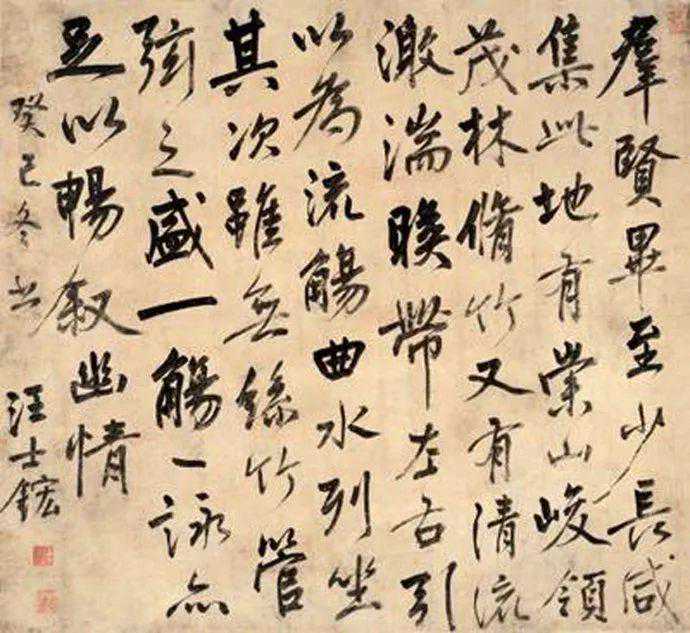 羣賢畢至少長咸
集此地有崇山峻領
茂林脩竹又有清流
激湍暎帶左右引
以為流觴曲水列坐
其次雖無絲竹管
弦之盛一觴一詠亦
足以暢叙幽情
癸巳冬书
汪士鋐